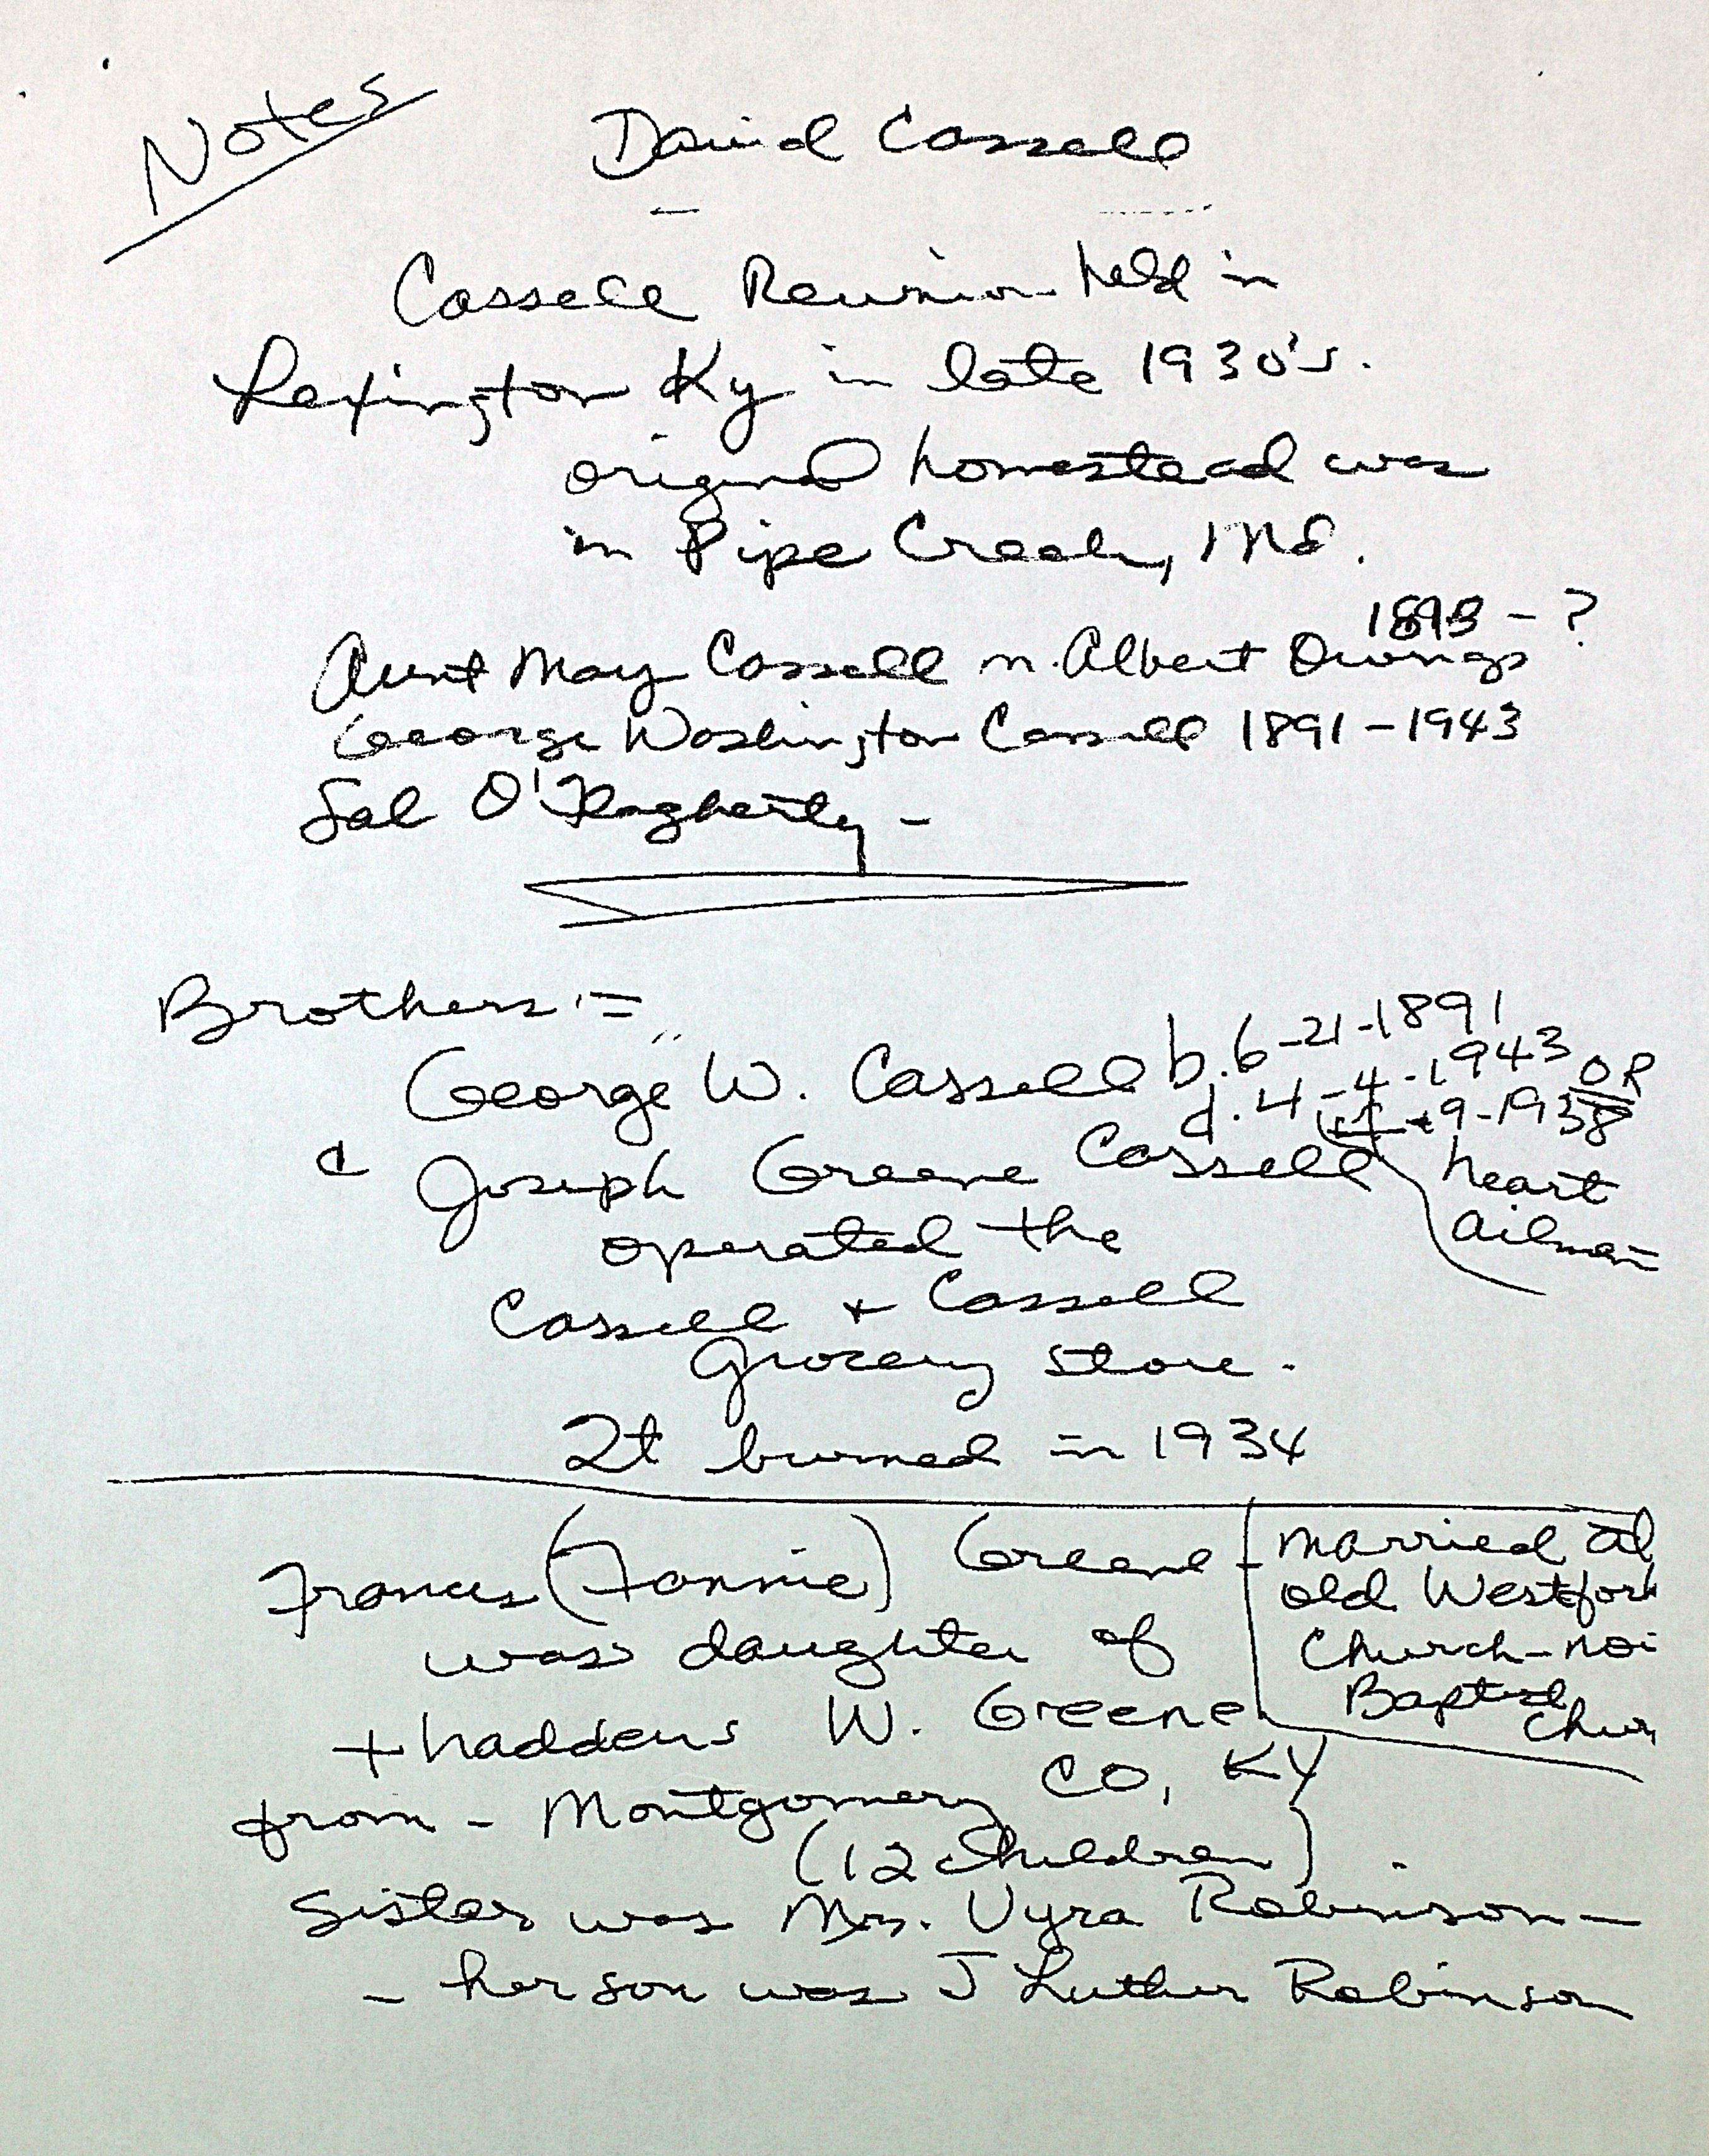 Notes
David Cassell
Cassell Reunion held in
Lexington Ky in late 1930's.
original homestead was
in Pipe Creek, Md.
1893 - ?
Aunt May Cassell m. Albert Owings
George Washington Cassell 1891-1943
Sal O'Flagherty -
Brothers :=
George W. Cassell b. 6-21-1891
d. 4-4-1943 OR
9-1938
& Joseph Greene Cassell
heart
ailmen
operated the
Cassell + Cassell
grocery store.
It burned in 1934
Frances (Fannie) Greene
was daughter of
Thaddeus W. Greene
married at
old Westfork
Church - no
Baptist
Chur
from - Montgomery CO, KY
(12 children).
Sister was Mrs. Vyra Robinson -
- her son was J Luther Robinson